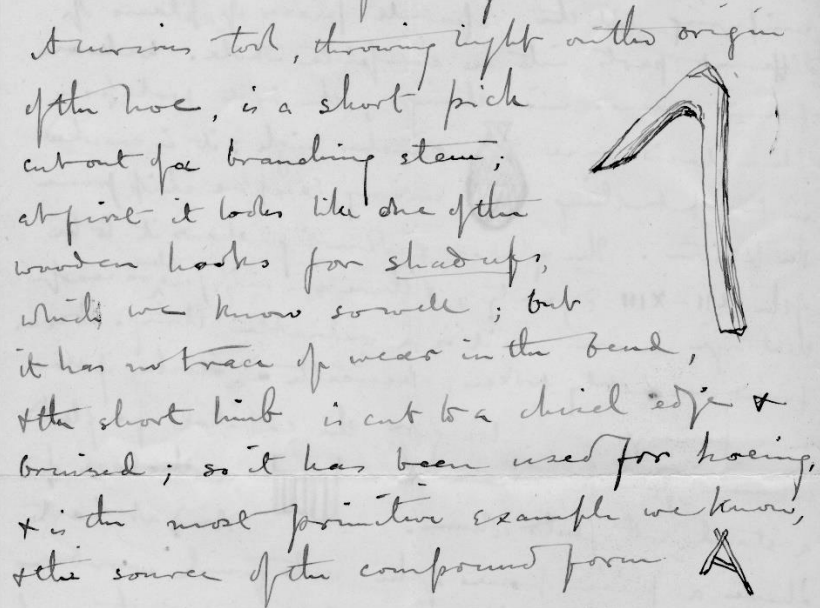 A curious tool, throwing light on the origin
of the hoe, is a short pick
cut out of a branching stem;
at first it looks like one of the
wooden hooks for shadufs,
which we know so well; but
it has no trace of wear in the bend,
& the short limb is cut to a chisel edge &
bruised; so it has been used for hoeing,
& is the most primitive example we know,
& the source of the compound form